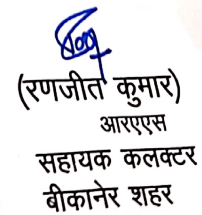 (रणजीत कुमार)
आरएएस
सहायक कलक्टर
बीकानेर शहर